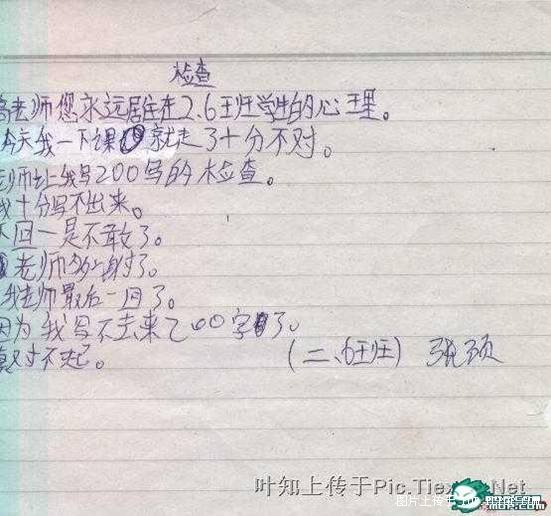 检查
老师您永远居住在2.6班学生的心里。
今天我一下课就走了十分不对。
老师让我写200写的检查。
我十分写不出来。
下回一是不敢了。
老师
我老师最后一回了。
因为我写不去来200字了。
真对不起。
(二、6班) 张
叶知上传于Pic.Tiex .Net
图片上传于